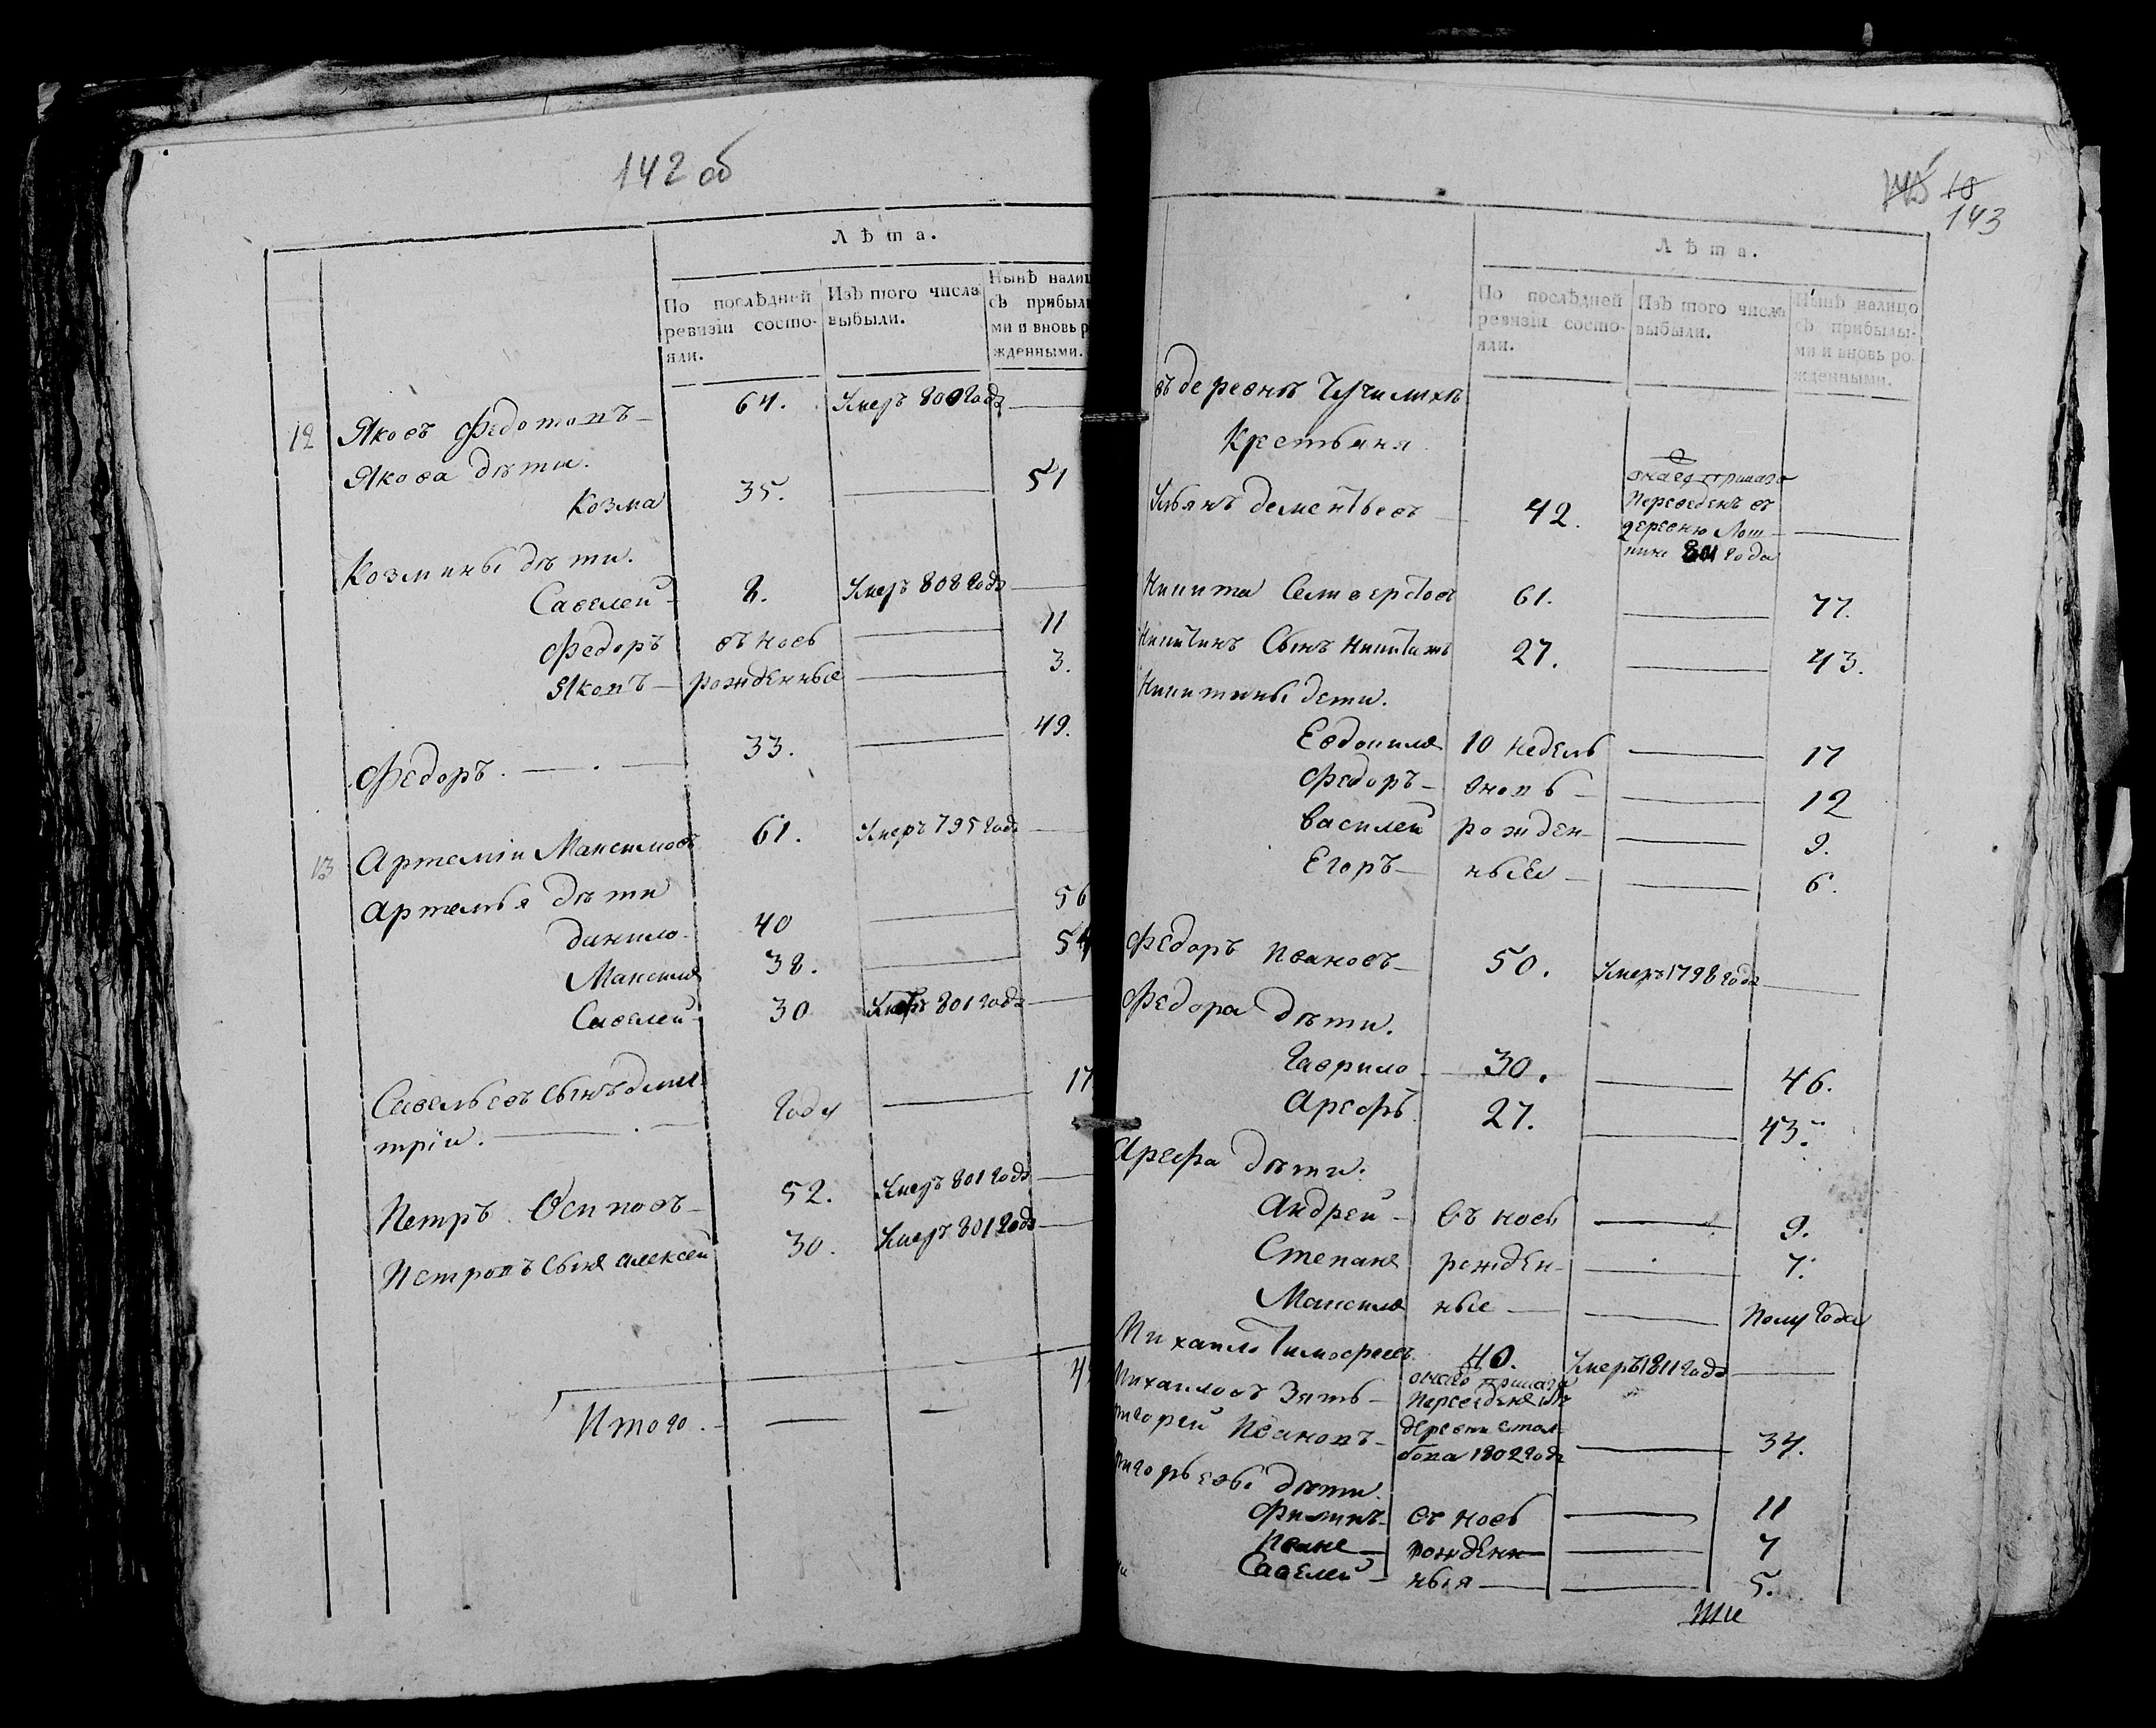 142 об
Лѣта.
По послѣдней
ревизіи состо-
яли.
Изъ того числа
выбыли.
Нынѣ налиц
съ прибыл
ми и вновь р
жденными.
12 Яковъ Федотовъ — 64. Умеръ 800 года —
Якова дѣти.
Козма 35. — 51
Козмины дѣти.
Савелей — 8. Умеръ 808 года —
Федоръ въ новь — 11
Яковъ — рожденные — 3.
Федоръ. — . — 33. — 49.
13 Артеміи Максимовъ 61. Умеръ 795 года —
Артемья дѣти
данило. 40 — 56
Максимъ 38. — 54
Савелей 30 Умеръ 801 года —
Савельевъ сынъ дми
трiи. — . — году — 17
Петръ Осиповъ — 52. Умеръ 801 года —
Петровъ сынъ алексей 30. Умеръ 801 года —
Итого. — — — 4
10
143
Лѣта.
По послѣдней
ревизіи состо-
яли.
Изъ того числа
выбыли.
Нынѣ налицо
съ прибылы-
ми и вновь ро-
жденными.
въ деревнѣ Чучилихѣ
Крестьяня
Ульянъ дементьевъ — 42.
Переведенъ въ
деревню
811 года —
Никита Селиверстовъ 61. — 77.
Никитинъ Сынъ Никита 27. — 43.
Никитины дети.
Евдокимъ 10 недель — 17
Федоръ — вновь — 12
василей рожден- — 9.
Егоръ — ныеи — 6.
Федоръ Ивановъ — 50. Умеръ 1798 года —
Федора дѣти.
Гаврило — 30. — 46.
Арефъ. 27. — 43.
Арефа дѣти.
Андрей — въ новь — 9.
Степанъ рожден- — 7.
Максимъ ные — — Полу года
Михаило Тимофеевъ 40. Умеръ 1811 года —
Михаиловъ Зять —
Переведенъ изъ
ригорей Ивановъ — деревни Стол-
бова 1802 года — 34.
ригорьевы дѣти.
Филипъ — въ новь — 11
Иванъ — рожден — 7
Савелей — ныя — — 5.